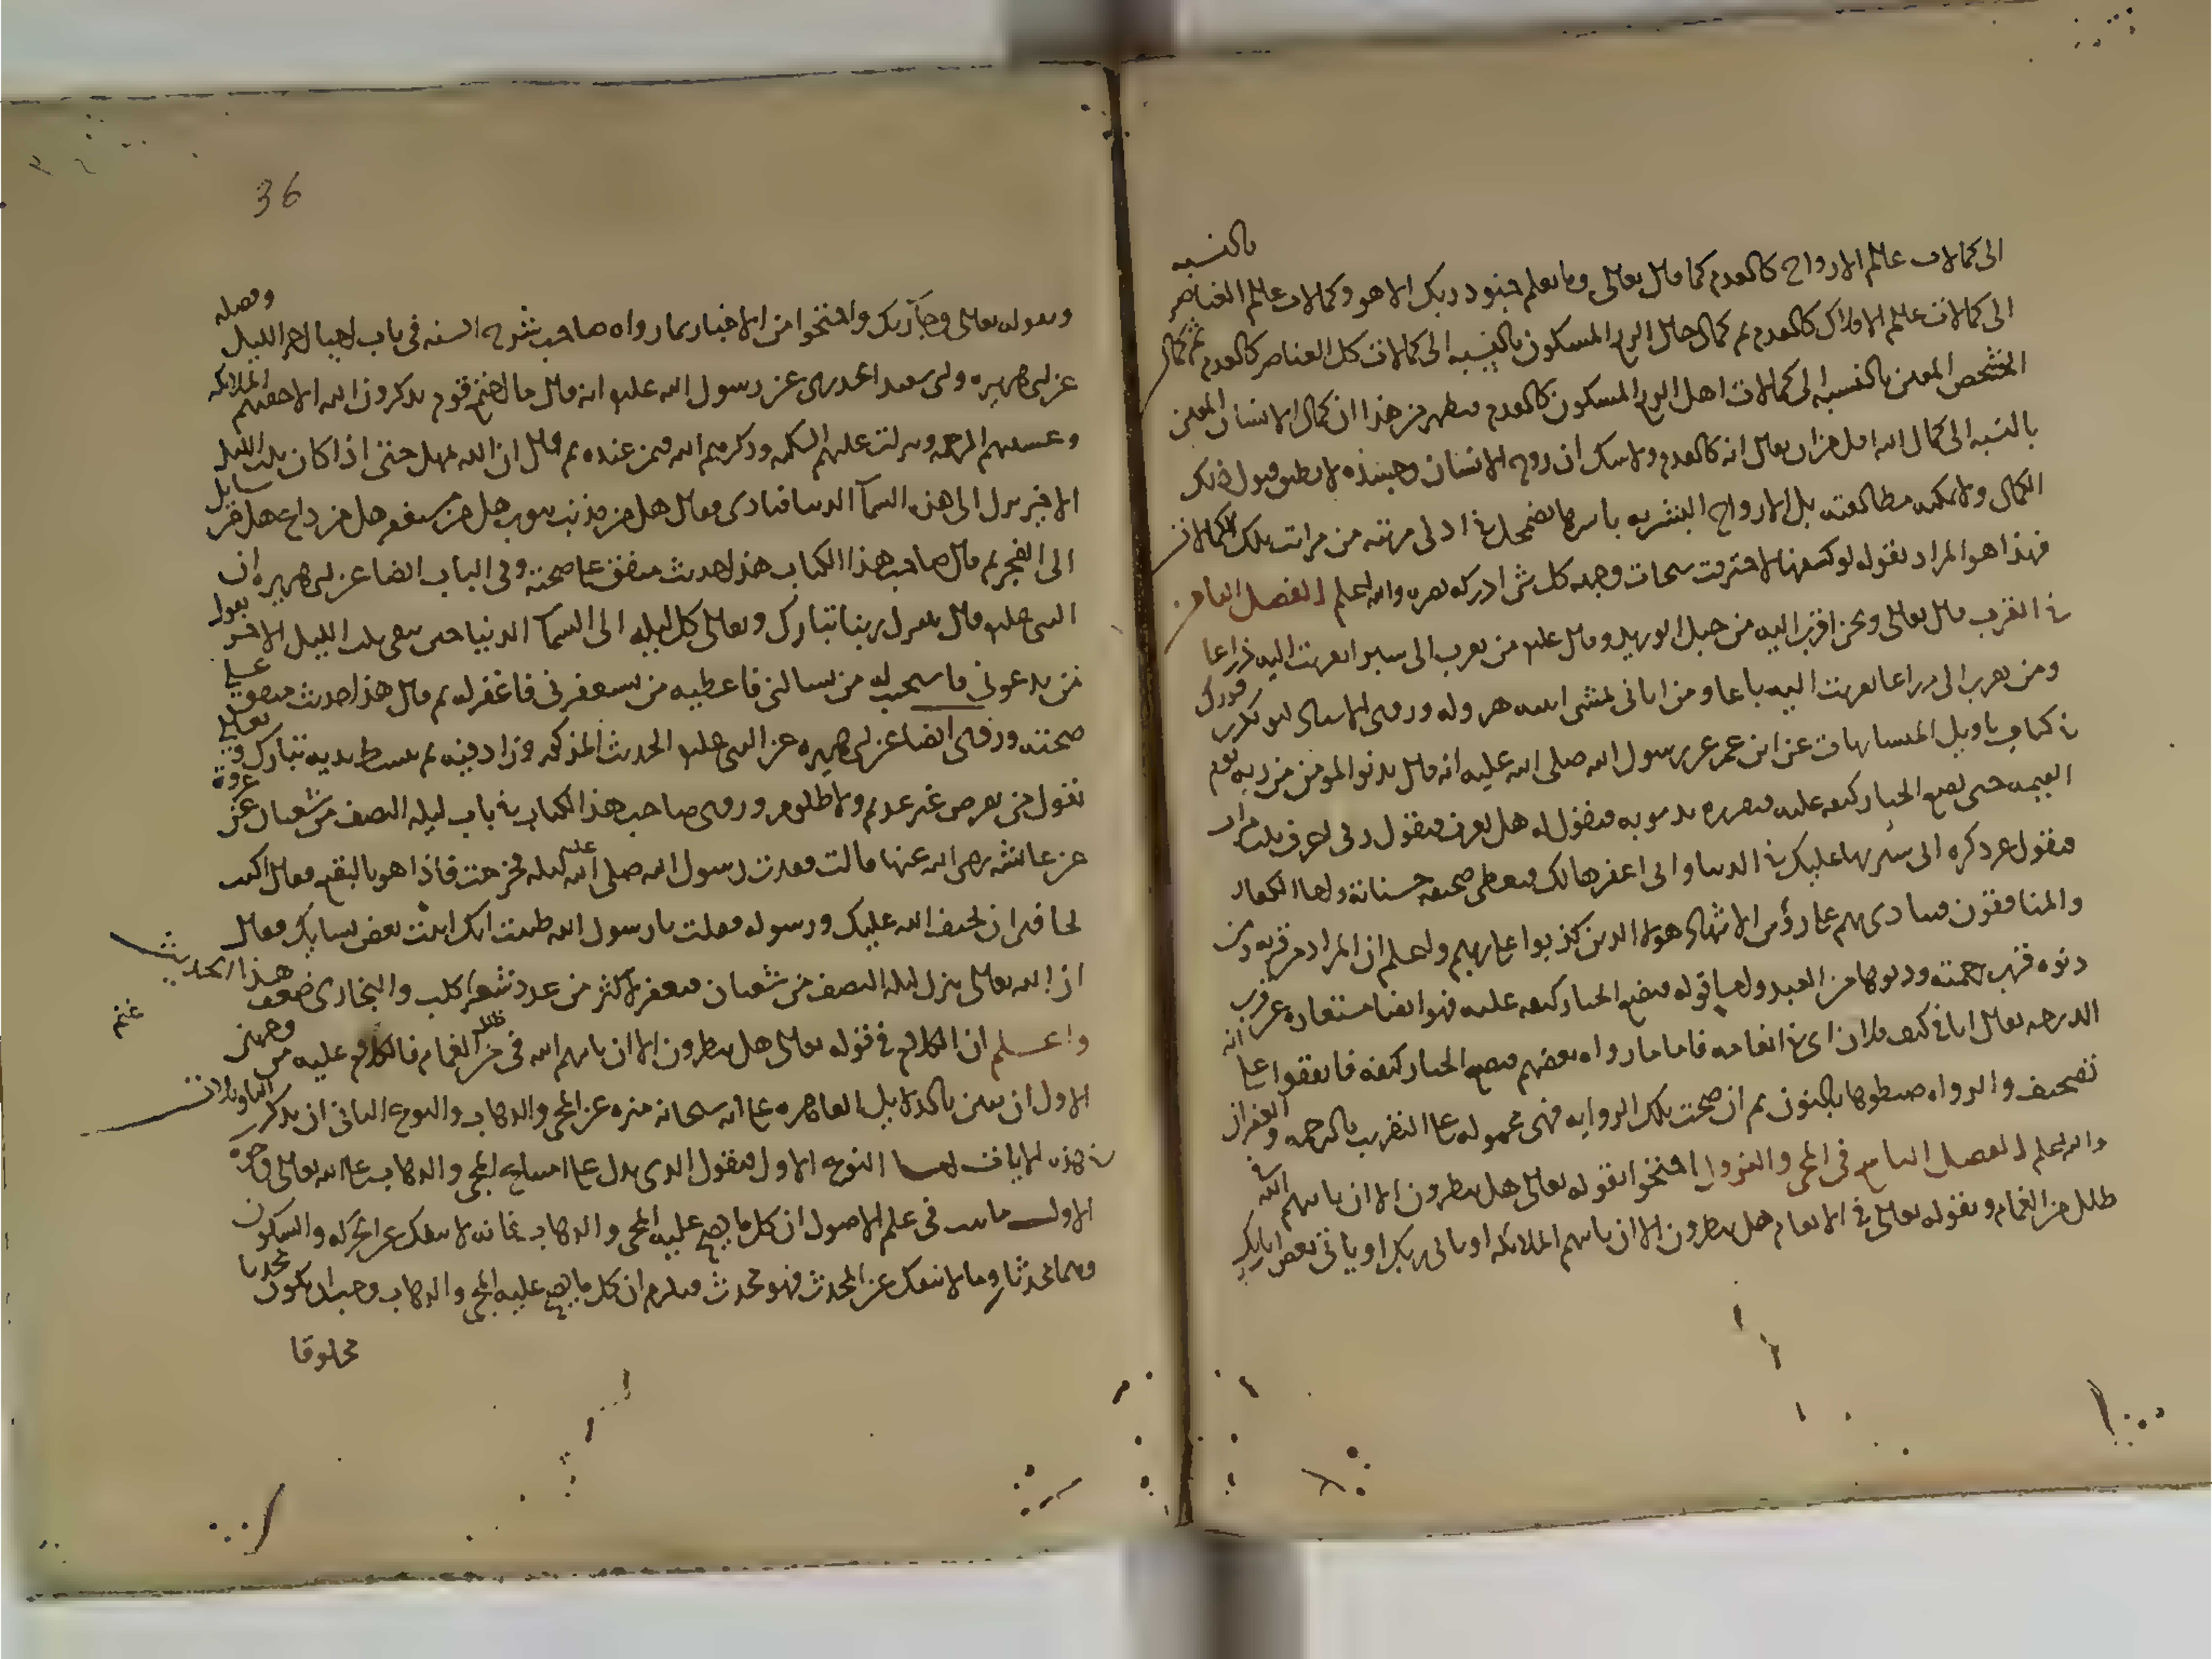 الى كمالات عالم الارواح كالعدم كما قال تعالى وما يعلم جنود ربك الا هو وكمالات عالم العناصر بالنسبه
الى كمالات عالم الافلاك كالعدم ثم كمال حال الربع المسكون بالنسبه الى كمالات كل العناصر كالعدم ثم كمال
الشخص المعين بالنسبه الى كمالات اهل الربع المسكون كالعدم فيظهر من هذا ان كمال الانسان المعين
بالنسبه الى كمال الله اقل من ان يقال انه كالعدم ولا شك ان روح الانسان وحيدة لا يطيق قبول ذلك
الكمال ولا يمكنه مطالعته بل الارواح البشريه باسرها تضمحل في ادنى مرتبه من مراتب تلك الكمالات
فهذا هو المراد بقوله لو كشفها لاحترقت سبحات وجهه كل شي ادركه بصره والله اعلم الفصل الثامن
في القرب قال تعالى ونحن اقرب اليه من حبل الوريد وقال عليه من تقرب الى شبرا تقربت اليه ذراعا
ومن تقرب الى ذراعا تقربت اليه باعا ومن اتاني يمشي اتيته هروله وروى الاستاذ ابو بكر بن فورك
في كتاب تاويل المتشابهات عن ابن عمر عن رسول الله صلى الله عليه انه قال يدنو المومن من ربه يوم
القيمه حتى يضع الجبار كنفه عليه فيقرره بذنوبه فيقول له هل تعرف فيقول رب اعرف ثلث مرات
فيقول عز ذكره انى سترتها عليك في الدنيا وانى اغفرها لك فيعطى صحيفه حسناته واما الكفار
والمنافقون فينادى بهم على رؤس الاشهاد هولا الذين كذبوا على ربهم واعلم ان المراد من قربه ومن
دنوه قرب رحمته ودنوها من العبد واما قوله فيضع الجبار كنفه عليه فهو ايضا مستعاره عن قرب
الرحمه يقال انا في كنف فلان اى في انعامه فاما ما رواه بعضهم فيضع الجبار كتفه فاتفقوا على انه
تصحيف والرواه ضبطوها بالنون ثم ان صحت تلك الروايه فهى محموله على التقريب بالرحمه والغفران
والله اعلم الفصل التاسع فى المجى والنزول احتجوا بقوله تعالى هل ينظرون الا ان ياتيهم الله في
ظلل من الغمام وبقوله تعالى في الانعام هل ينظرون الا ان ياتيهم الملائكه او ياتى ربك او ياتى بعض ايات ربك
36
وبقوله تعالى وجآ ربك واحتجوا من الاخبار بما رواه صاحب شرح السنه فى باب احيا اخر الليل وفضله
عن ابى هريره وابى سعيد الخدرى عن رسول الله عليه انه قال ما اجتمع قوم يذكرون الله الا حفتهم الملائكه
وغشيتهم الرحمه ونزلت عليهم السكينه وذكرهم الله فيمن عنده ثم قال ان الله يمهل حتى اذا كان ثلث الليل
الاخير نزل الى هذه السمآ الدنيا فنادى فقال هل من مذنب يتوب هل من مستغفر هل من داع هل من سايل
الى الفجر ثم قال صاحب هذا الكتاب هذا حديث متفق على صحته وفى الباب ايضا عن ابى هريره ان
النبى عليه قال ينزل ربنا تبارك وتعالى كل ليله الى السمآ الدنيا حين يبقى ثلث الليل الاخر يقول
من يدعونى فاستجيب له من يسالنى فاعطيه من يستغفرنى فاغفر له ثم قال هذا حديث متفق على
صحته وروى ايضا عن ابى هريره عن النبى عليه الحديث المذكور وزاد فيه ثم يبسط يديه تبارك وتعالى
يقول من يقرض غير عديم ولا ظلوم وروى صاحب هذا الكتاب في باب ليله النصف من شعبان عن عروة
عن عائشه رضى الله عنها قالت فقدت رسول الله صلى الله عليه ليله فخرجت فاذا هو بالبقيع فقال اكنت
تخافين ان يحيف الله عليك ورسوله فقلت يا رسول الله ظننت انك اتيت بعض نسايك فقال
ان الله تعالى ينزل ليله النصف من شعبان فيغفر لاكثر من عدد شعر كلب والبخارى ضعف هذا الحديث
غنم
واعلم ان الكلام فى قوله تعالى هل ينظرون الا ان ياتيهم الله فى ظلل من الغمام فالكلام عليه من وجهين
الاول ان نبين بالدلايل القاهره على انه سبحانه منزه عن المجى والذهاب والنوع الثانى ان نذكر التاويلات
في هذه الايات اما النوع الاول فنقول الذى يدل على امتناع المجى والذهاب على الله تعالى وجوه
الاول ما ثبت فى علم الاصول ان كل ما يصح عليه المجى والذهاب فانه لا ينفك عن الحركه والسكون
وهما محدثان وما لا ينفك عن المحدث فهو محدث فيلزم ان كل ما يصح عليه المجى والذهاب وجب ان يكون محدثا
مخلوقا